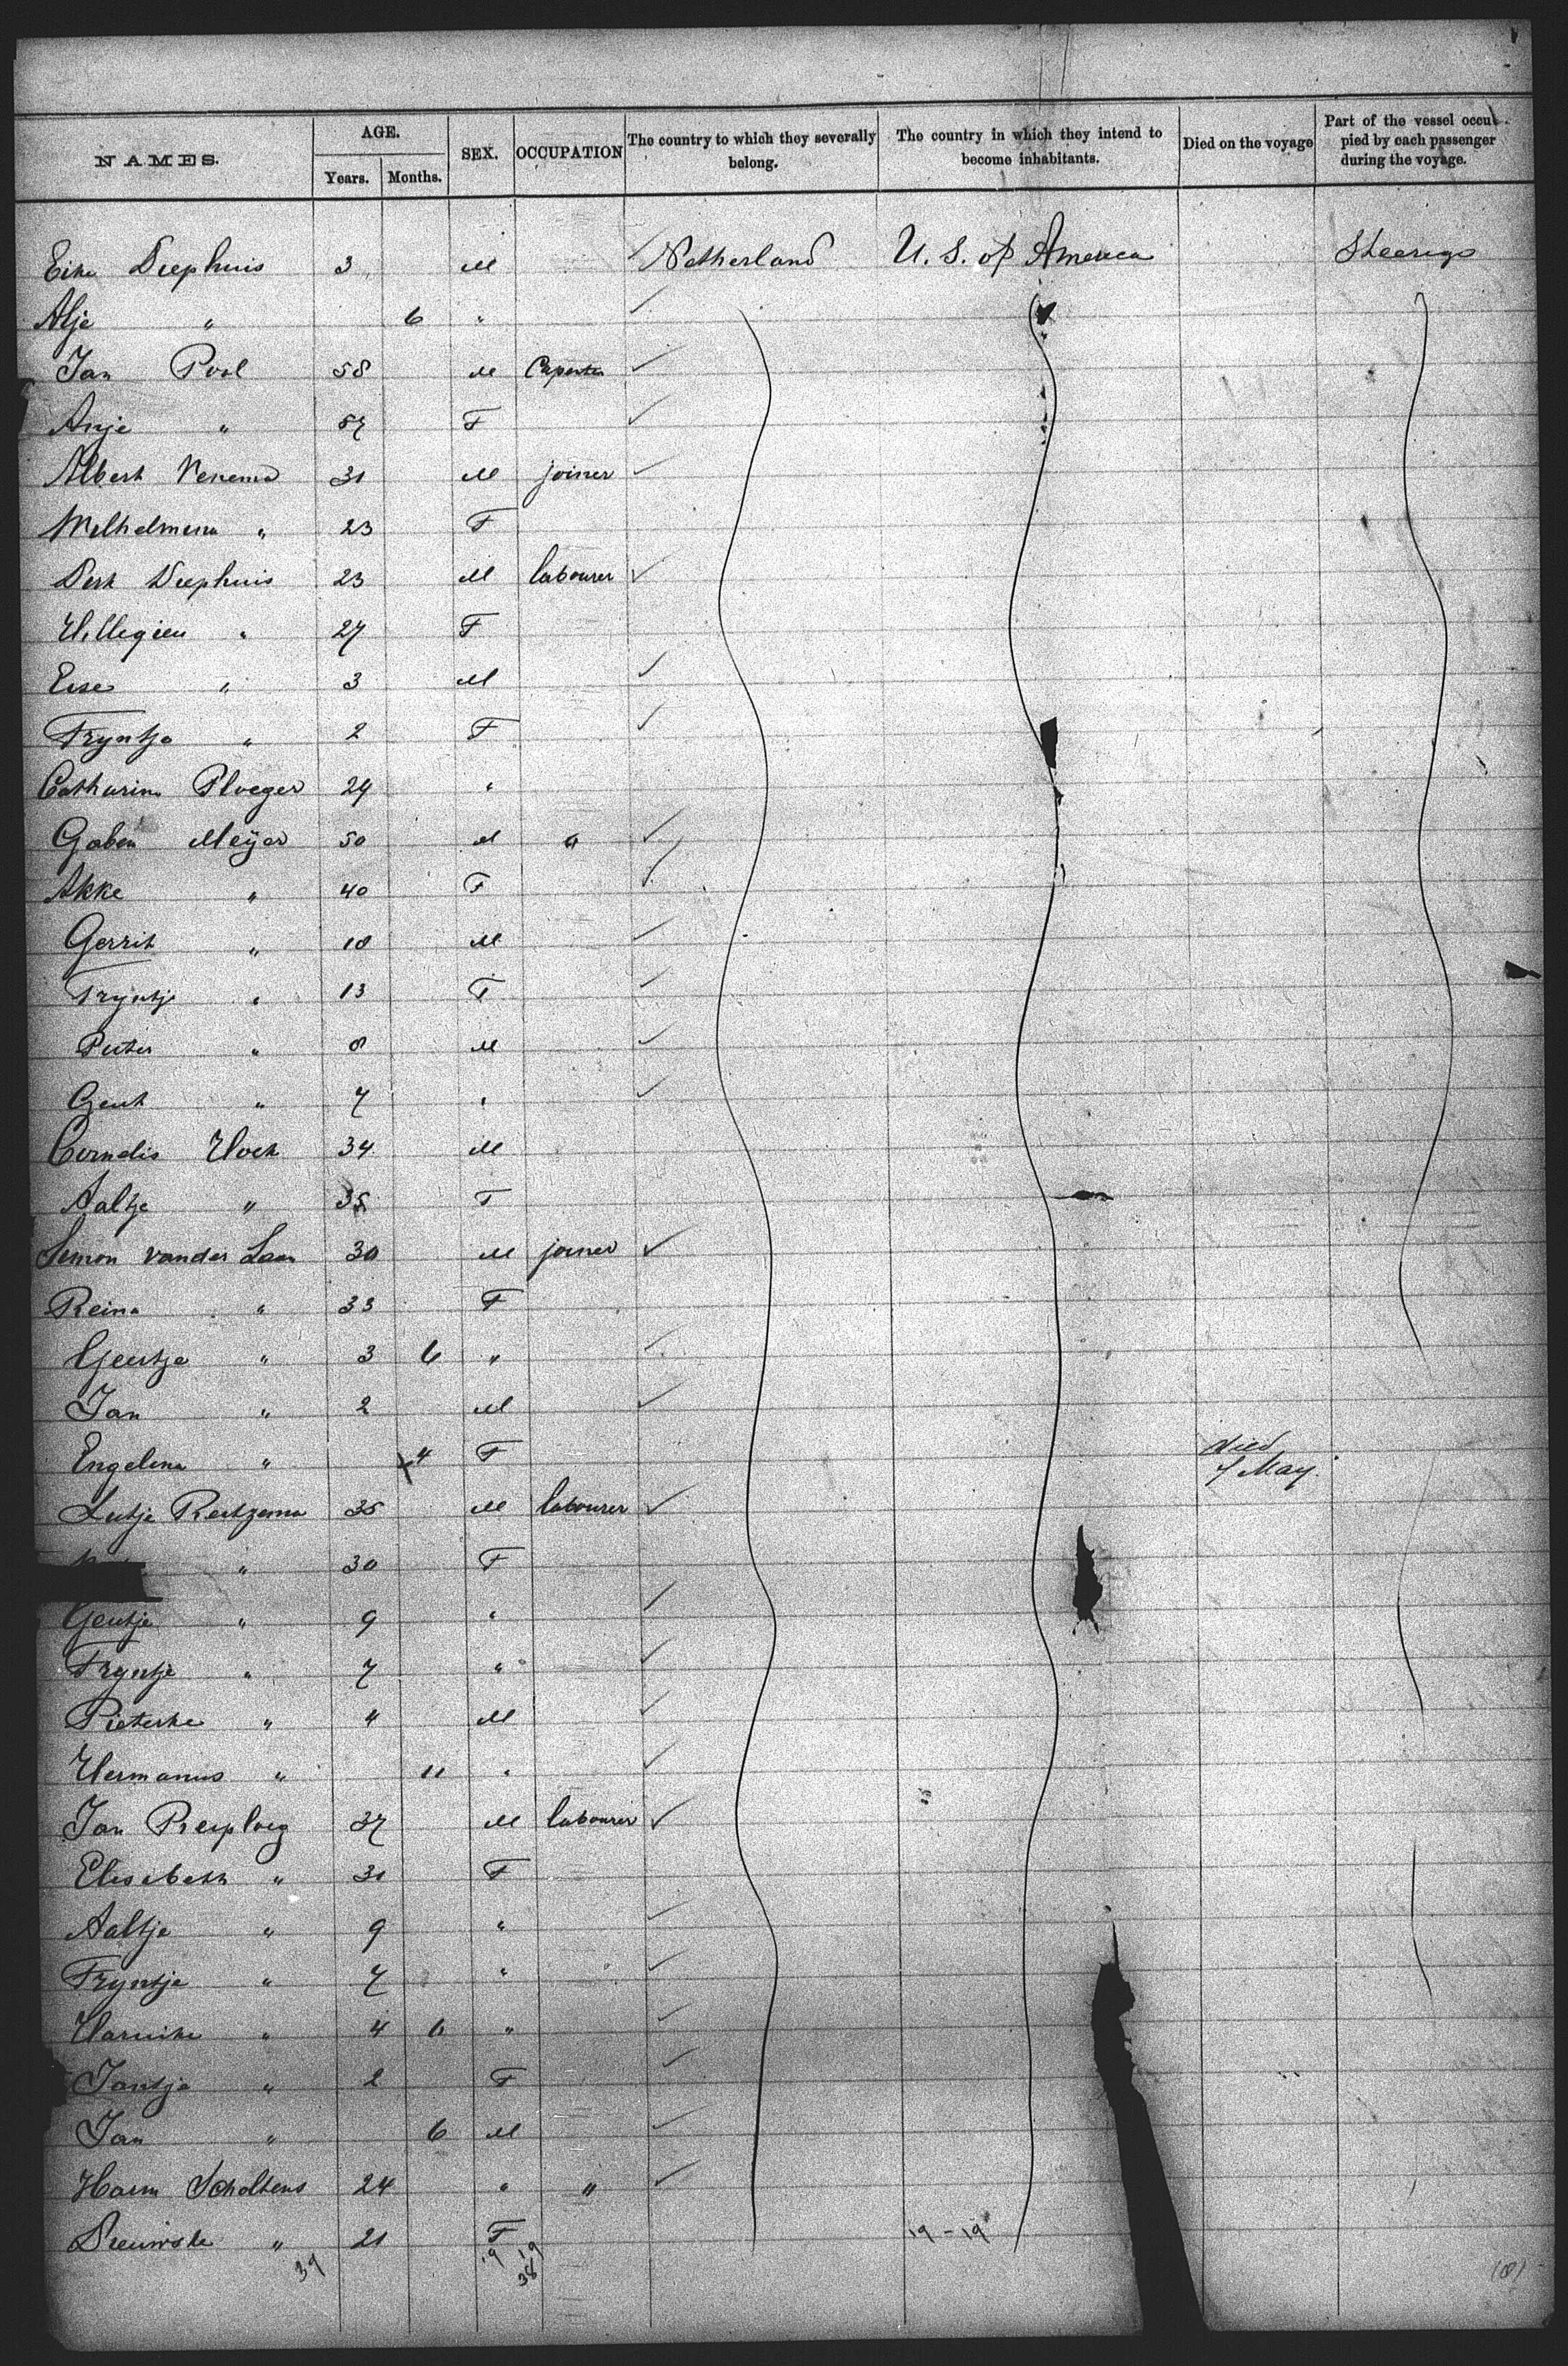 NAMES. AGE. Years. Months. SEX. OCCUPATION The country to which they severally belong. The country in which they intend to become inhabitants. Died on the voyage Part of the vessel occupied by each passenger during the voyage.
Eike Diephuis 3 M Netherland U. S. of America Steerage
Alje " 6 "
Jan Pool 58 M Capenter
Anje " 57 F
Albert Venema 31 M joiner
Wilhelmina " 23 F
Derk Diephuis 23 M labourer
Hillegien " 27 F
Eise " 3 M
Tryntje " 2 F
Catharina Ploeger 24 "
Meijer 50 M "
Akke " 40 F
Gerrit " 18 M
Tryntje " 13 F
Pieter " 8 M
Geert " 7 "
Cornelis Hoek 34 M
Aaltje " 35 F
Simon vander Laan 30 M joiner
Reina " 33 F
Geertje " 3 6 "
Jan " 2 M
Engelina " 4 F Died 7 May.
Lutje 35 M labourer
" 30 F
Geertje " 9 "
Tryntje " 7 "
Pieterke " 4 M
Hermanus " 11 "
Jan 37 M labourer
Elisabeth " 31 F
Aaltje " 9 "
Tryntje " 7 "
" 4 6 "
Jantje " 2 F
Jan " 6 M
Harm Scholtens 24 " "
" 21 F
39 19 19 38 19 - 19
(8)